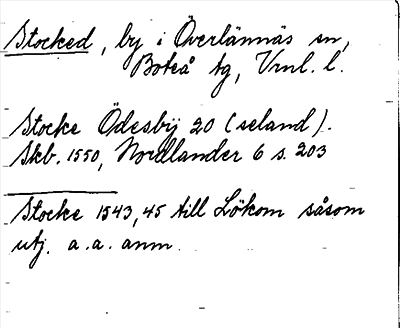 Stocked, by i Överlännäs sn,
Boteå tg, Vrnl. l.
Stocke Ödesbÿ 20 (seland).
Skb. 1550, Nordlander 6 s. 203
Stocke 1543, 45 till Lökom såsom
utj. a.a. anm.